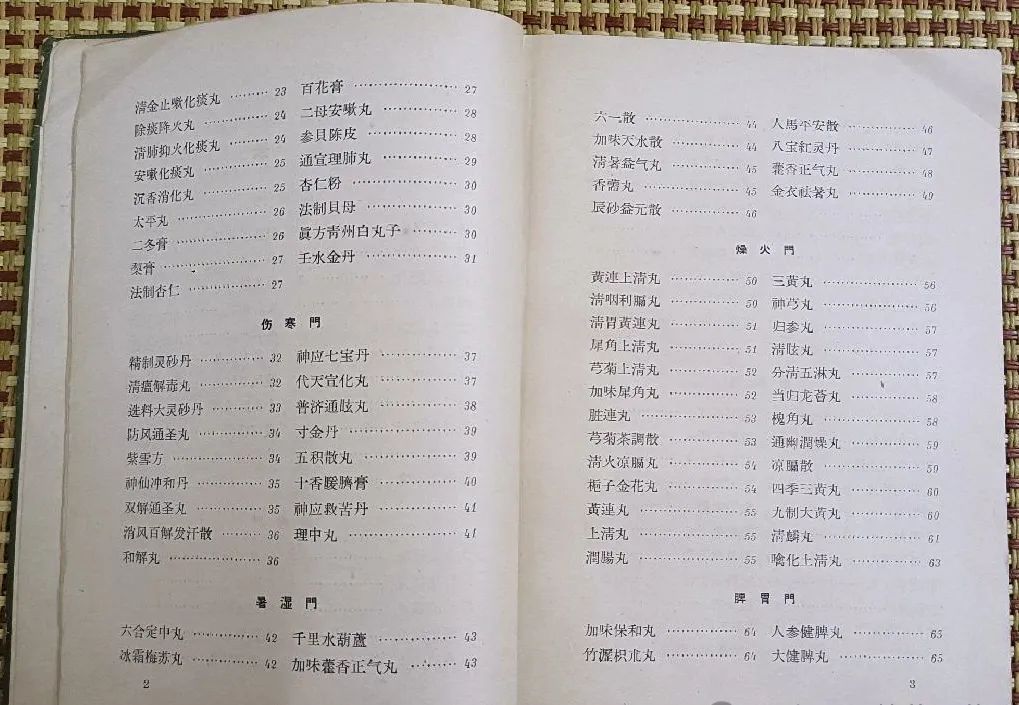 清金止嗽化痰丸 ……… 23
除痰降火丸 ……… 24
清肺抑火化痰丸 ……… 24
安嗽化痰丸 ……… 25
沉香消化丸 ……… 25
太平丸 ……… 26
二冬膏 ……… 26
梨膏 ……… 27
法制杏仁 ……… 27
百花膏 ……… 27
二母安嗽丸 ……… 28
参貝陈皮 ……… 28
通宣理肺丸 ……… 29
杏仁粉 ……… 30
法制貝母 ……… 30
眞方青州白丸子 ……… 30
壬水金丹 ……… 31
伤寒門
精制灵砂丹 ……… 32
清瘟解毒丸 ……… 32
选料大灵砂丹 ……… 33
防风通圣丸 ……… 34
紫雪方 ……… 34
神仙冲和丹 ……… 35
双解通圣丸 ……… 35
消风百解发汗散 ……… 36
和解丸 ……… 36
神应七宝丹 ……… 37
代天宣化丸 ……… 37
普济通眩丸 ……… 38
寸金丹 ……… 39
五积散丸 ……… 39
十香暖臍膏 ……… 40
神应救苦丹 ……… 41
理中丸 ……… 41
暑湿門
六合定中丸 ……… 42
冰霜梅苏丸 ……… 42
千里水葫蘆 ……… 43
加味藿香正气丸 ……… 43
2
六一散 ……… 44
加味天水散 ……… 44
清暑益气丸 ……… 45
香薷丸 ……… 45
辰砂益元散 ……… 46
人馬平安散 ……… 46
八宝紅灵丹 ……… 47
藿香正气丸 ……… 48
金衣祛暑丸 ……… 49
燥火門
黃連上清丸 ……… 50
清咽利膈丸 ……… 50
清胃黃連丸 ……… 51
犀角上清丸 ……… 51
芎菊上清丸 ……… 52
加味犀角丸 ……… 52
脏連丸 ……… 53
芎菊茶調散 ……… 53
清火凉膈丸 ……… 54
梔子金花丸 ……… 54
黃連丸 ……… 55
上清丸 ……… 55
潤腸丸 ……… 55
三黃丸 ……… 56
神芎丸 ……… 56
归参丸 ……… 57
清眩丸 ……… 57
分清五淋丸 ……… 57
当归龙荟丸 ……… 58
槐角丸 ……… 58
通幽潤燥丸 ……… 59
凉膈散 ……… 59
四季三黃丸 ……… 60
九制大黃丸 ……… 60
清麟丸 ……… 61
噙化上清丸 ……… 63
脾胃門
加味保和丸 ……… 64
竹瀝枳朮丸 ……… 64
人参健脾丸 ……… 65
大健脾丸 ……… 65
3